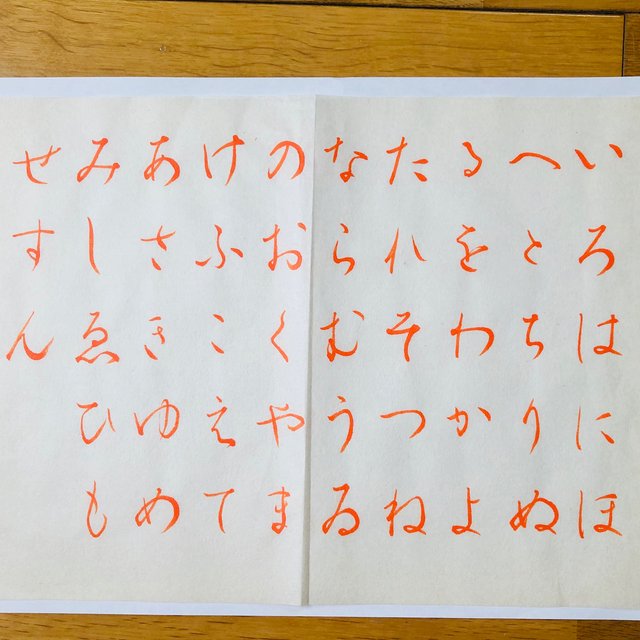 いろはにほ
へとちりぬ
るをわかよ
たれそつね
ならむうゐ
のおくやま
けふこえて
あさきゆめ
みしゑひも
せすん